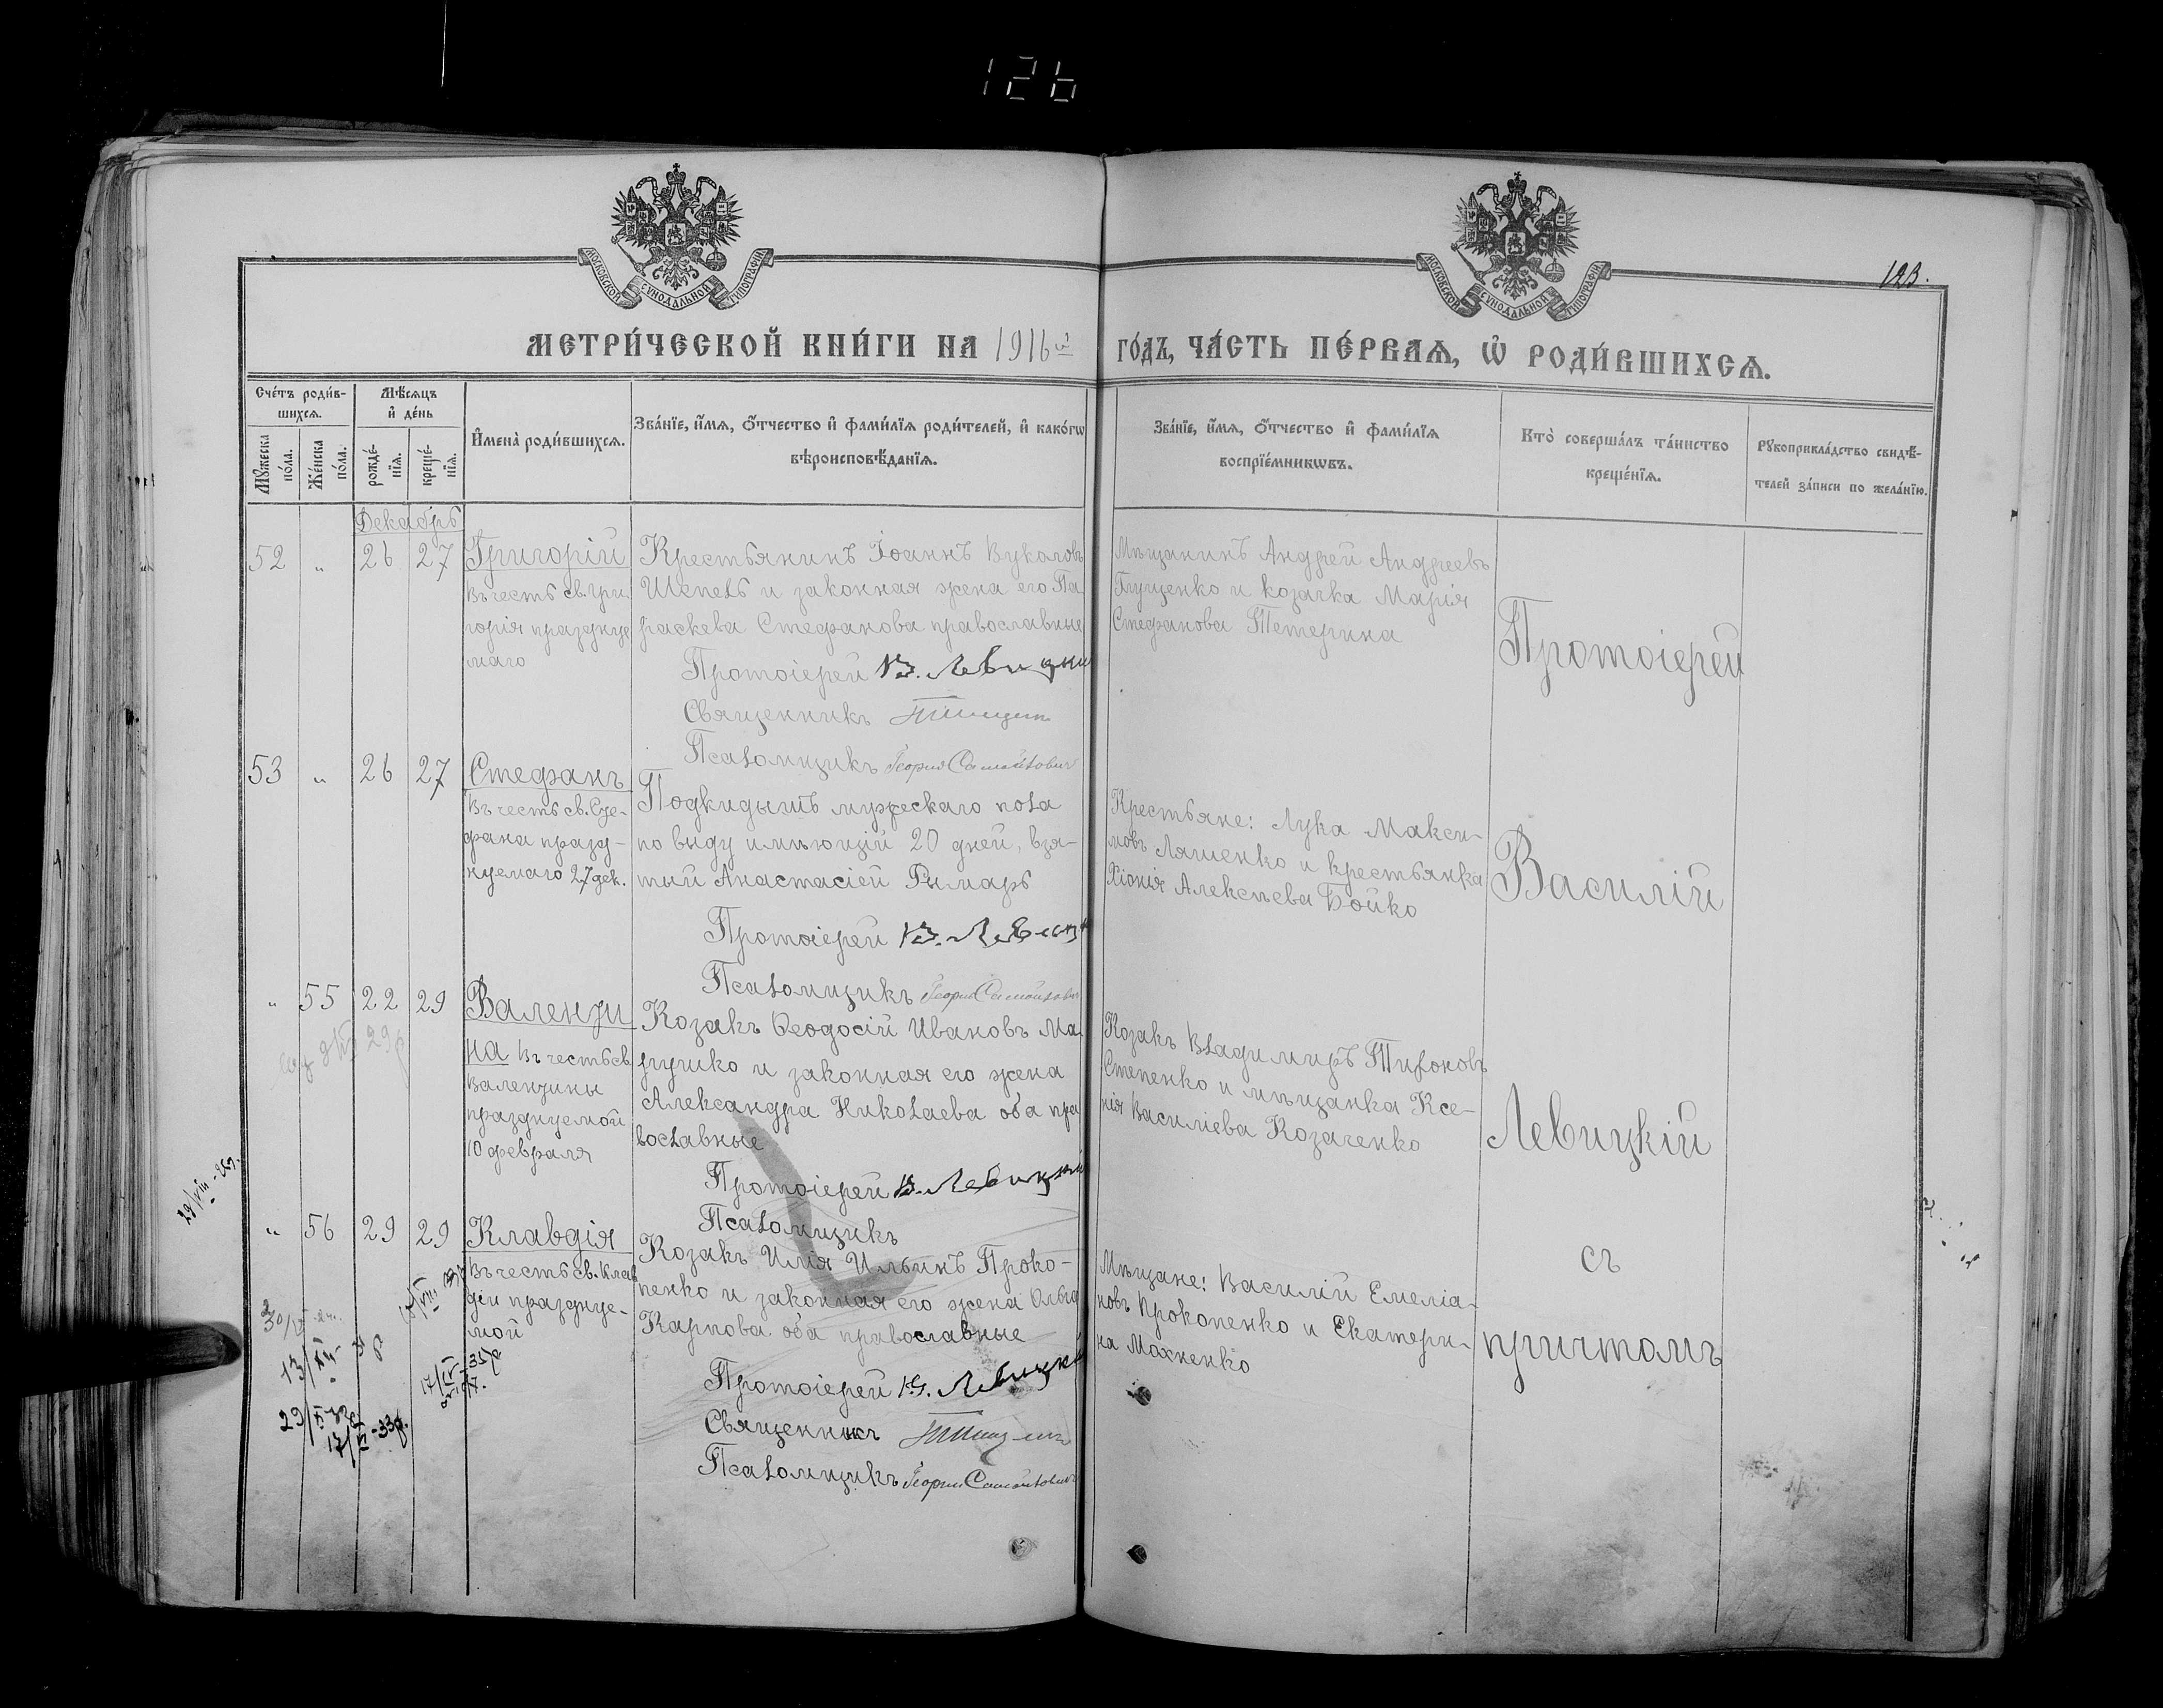 126
МОСКОВСКОЙ СѴНОДАЛЬНОЙ ТИПОГРАФІИ
МОСКОВСКОЙ СѴНОДАЛЬНОЙ ТИПОГРАФІИ
123.
МЕТРИ́ЧЕСКОЙ КНИ́ГИ НА 1916й ГО́ДЪ, ЧА́СТЬ ПЕ́РВАЯ, Ѽ РОДИ́ВШИХСЯ.
Сче́тъ роди́в-
шихся.
Мѣ́сяцъ
и҆ де́нь
Мꙋ́жеска
по́ла.
Же́нска
по́ла.
рожде́-
нїя.
креще́-
нїя.
И҆мена̀ роди́вшихся.
Зва́нїе, и҆́мя, ѻ҆́тчество и҆ фами́лїя роди́телей, и҆ како́гѡ
вѣроисповѣ́данїя.
Зва́нїе, и҆́мя, ѻ҆́тчество и҆ фами́лїя
воспрїе́мникѡвъ.
Кто̀ соверша́лъ та́инство
креще́нїя.
Рꙋкоприкла́дство свидѣ́-
телей за́писи по жела́нїю.
Декабрь
52 " 26 27 Григорій
Въ честь св. Гри
горія праздне
маго
Крестьянинъ Іоаннъ Вуколовъ
Шепель и законная жена его Па
раскева Стефанова православные
Протоіерей В. Левицкій
Священникъ
Псаломщикъ Георгій Самойлович
Мѣщанинъ Андрей Андреевъ
Глущенко и козачка Марія
Стефанова Тетерина
Протоіерей
53 " 26 27 Стефанъ
Въ честь св. Сте-
фана празд-
нуемаго 27 дек.
Подкидышъ мужескаго пола
по виду имѣющій 20 дней, взя-
тый Анастасіей Рымарь
Протоіерей В. Левицкій
Псаломщикъ Георгій Самойлович
Крестьяне: Лука Макси-
мовъ Ляшенко и крестьянка
Хіонія Алексѣева Бойко
Василій
" 55 22 29 Валенти
на Въ честь св.
Валентины
празднуемой
10 февраля
Козакъ Ѳеодосій Ивановъ Ма
зушко и законная его жена
Александра Николаева оба пра
вославные
Протоіерей В. Левицкій
Псаломщикъ
Козакъ Владимиръ Тихоновъ
Степенко и мѣщанка Ксе-
нія Василіева Козаченко
Левицкій
" 56 29 29 Клавдія
Въ честь св. Клав
діи праздное-
мой
Козакъ Илія Ильинъ Проко-
пенко и законная его жена Ольга
Карпова. оба православные
Протоіерей В. Левицкій
Священникъ
Псаломщикъ Георгій Самойлович
Мѣщане: Василій Емеліа-
новъ Прокопенко и Екатери-
на Махненко
съ
причтомъ